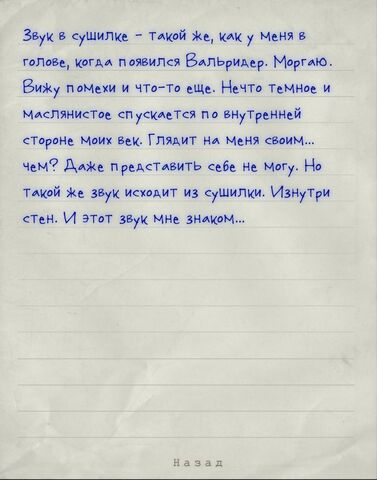 Звук в сушилке - такой же, как у меня в
голове, когда появился Вальридер. Моргаю.
Вижу помехи и что-то еще. Нечто темное и
маслянистое спускается по внутренней
стороне моих век. Глядит на меня своим...
чем? Даже представить себе не могу. Но
такой же звук исходит из сушилки. Изнутри
стен. И этот звук мне знаком...
Назад